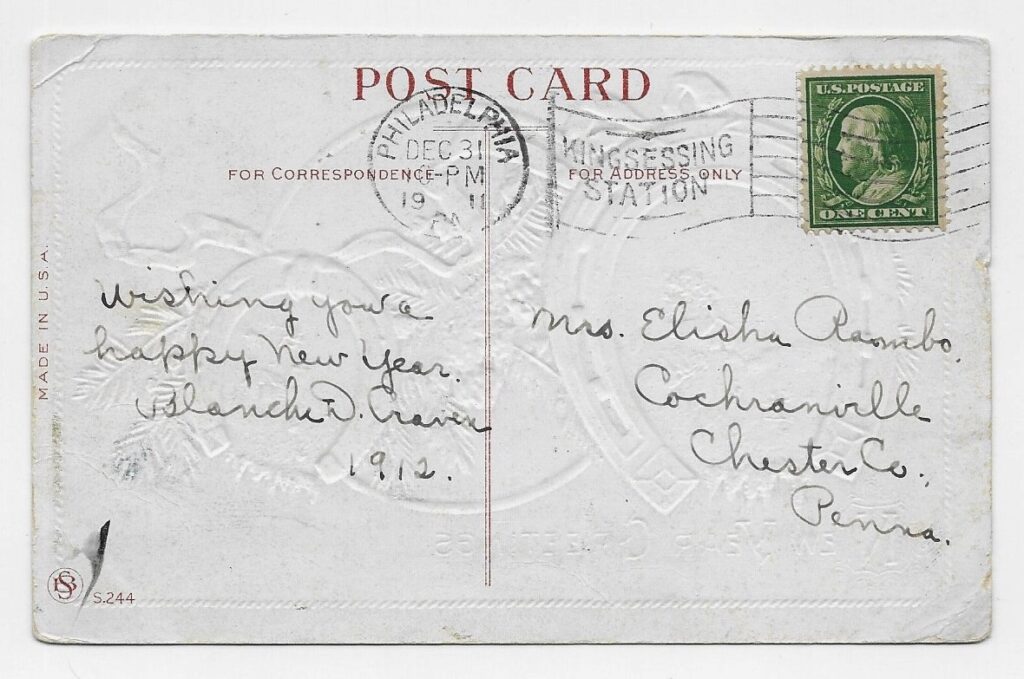 POST CARD
PHILADELPHIA
DEC 31
-PM
19 11
PA
KINGSESSING
STATION
U.S. POSTAGE
ONE CENT
FOR CORRESPONDENCE
FOR ADDRESS ONLY
MADE IN U.S.A.
Wishing you a
happy New Year.
Blanche D. Craven
1912.
Mrs. Elisha Rambo.
Cochranville
Chester Co.,
Penna.
NEW YEAR GREETINGS
SB
S.244